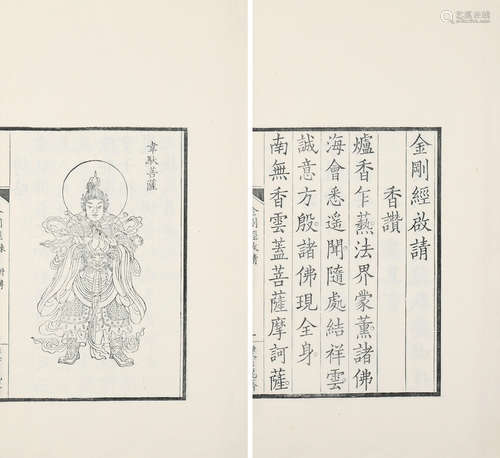 金剛經啟請
香讚
爐香乍爇法界蒙薰諸佛
海會悉遙聞隨處結祥雲
誠意方殷諸佛現全身
南無香雲蓋菩薩摩訶薩
金剛經啟請
韋馱菩薩